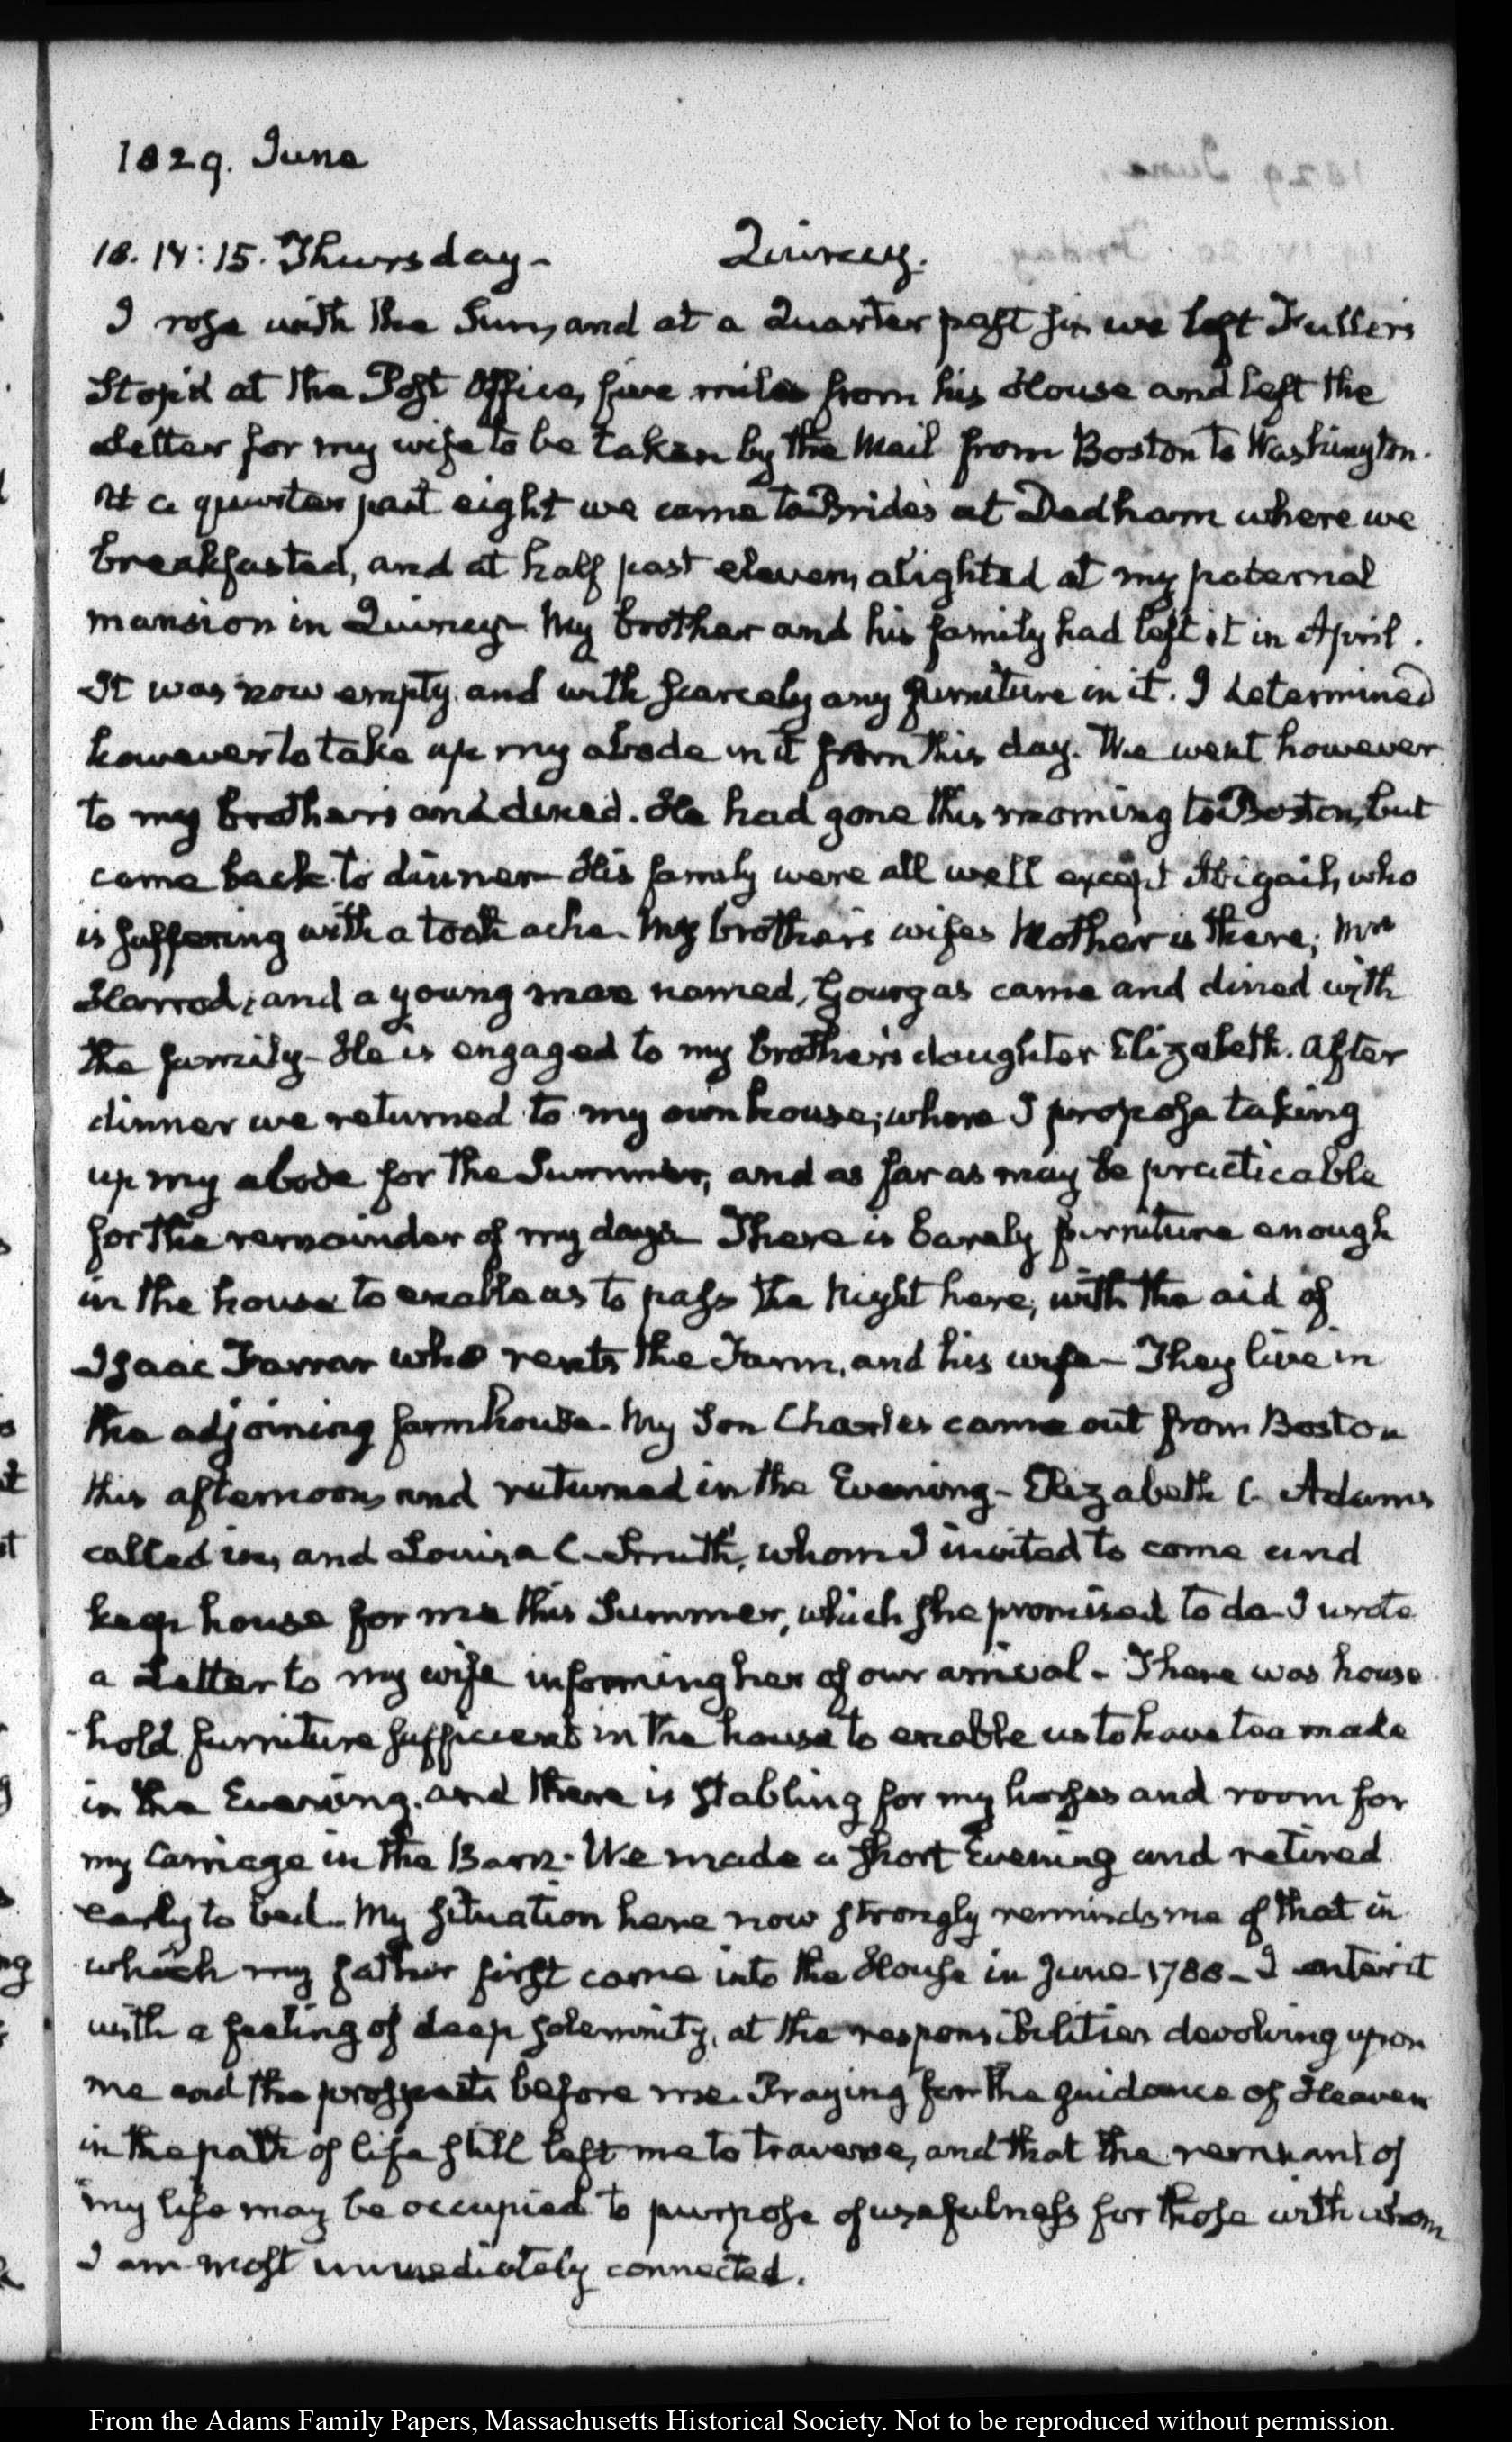 1829. June
18. IV: 15. Thursday- Quincy.
I rose with the Sun, and at a Quarter past six we left Fuller's
Stop'd at the Post Office, five miles from his House and left the
Letter for my wife to be taken by the Mail from Boston to Washington.
At a quarter past eight we came to Bride's at Dedham where we
breakfasted, and at half past eleven, alighted at my paternal
mansion in Quincy- My brother and his family had left it in April.
It was now empty and with scarcely any furniture in it. I determined
however to take up my abode in it from this day. We went however
to my brother's and dined. He had gone this morning to Boston, but
came back to dinner- His family were all well except Abigail, who
is suffering with a tooth ache- My brother's wife's Mother is there; Mrs
Harrod; and a young man named, Gourgas came and dined with
the family- He is engaged to my brother's daughter Elizabeth. After
dinner we returned to my own house; where I propose taking
up my abode for the Summer, and as far as may be practicable
for the remainder of my days- There is barely furniture enough
in the house to enable us to pass the Night here, with the aid of
Isaac Farrar who rents the Farm, and his wife- They live in
the adjoining farm house- My Son Charles came out from Boston
this afternoon, and returned in the Evening- Elizabeth C. Adams
called in, and Louisa C. Smith, whom I invited to come and
keep house for me this Summer, which she promised to do- I wrote
a Letter to my wife informing her of our arrival- There was house
hold furniture sufficient in the house to enable us to have tea made
in the Evening. and there is stabling for my horses and room for
my Carriage in the Barn- We made a short Evening and retired
early to bed- My situation here now strongly reminds me of that in
which my father first came into the House in June- 1788- I enter it
with a feeling of deep solemnity, at the responsibilities devolving upon
me and the prospects before me. Praying for the guidance of Heaven
in the path of life still left me to traverse, and that the remnant of
my life may be occupied to purpose of usefulness for those with whom
I am most immediately connected.
From the Adams Family Papers, Massachusetts Historical Society. Not to be reproduced without permission.